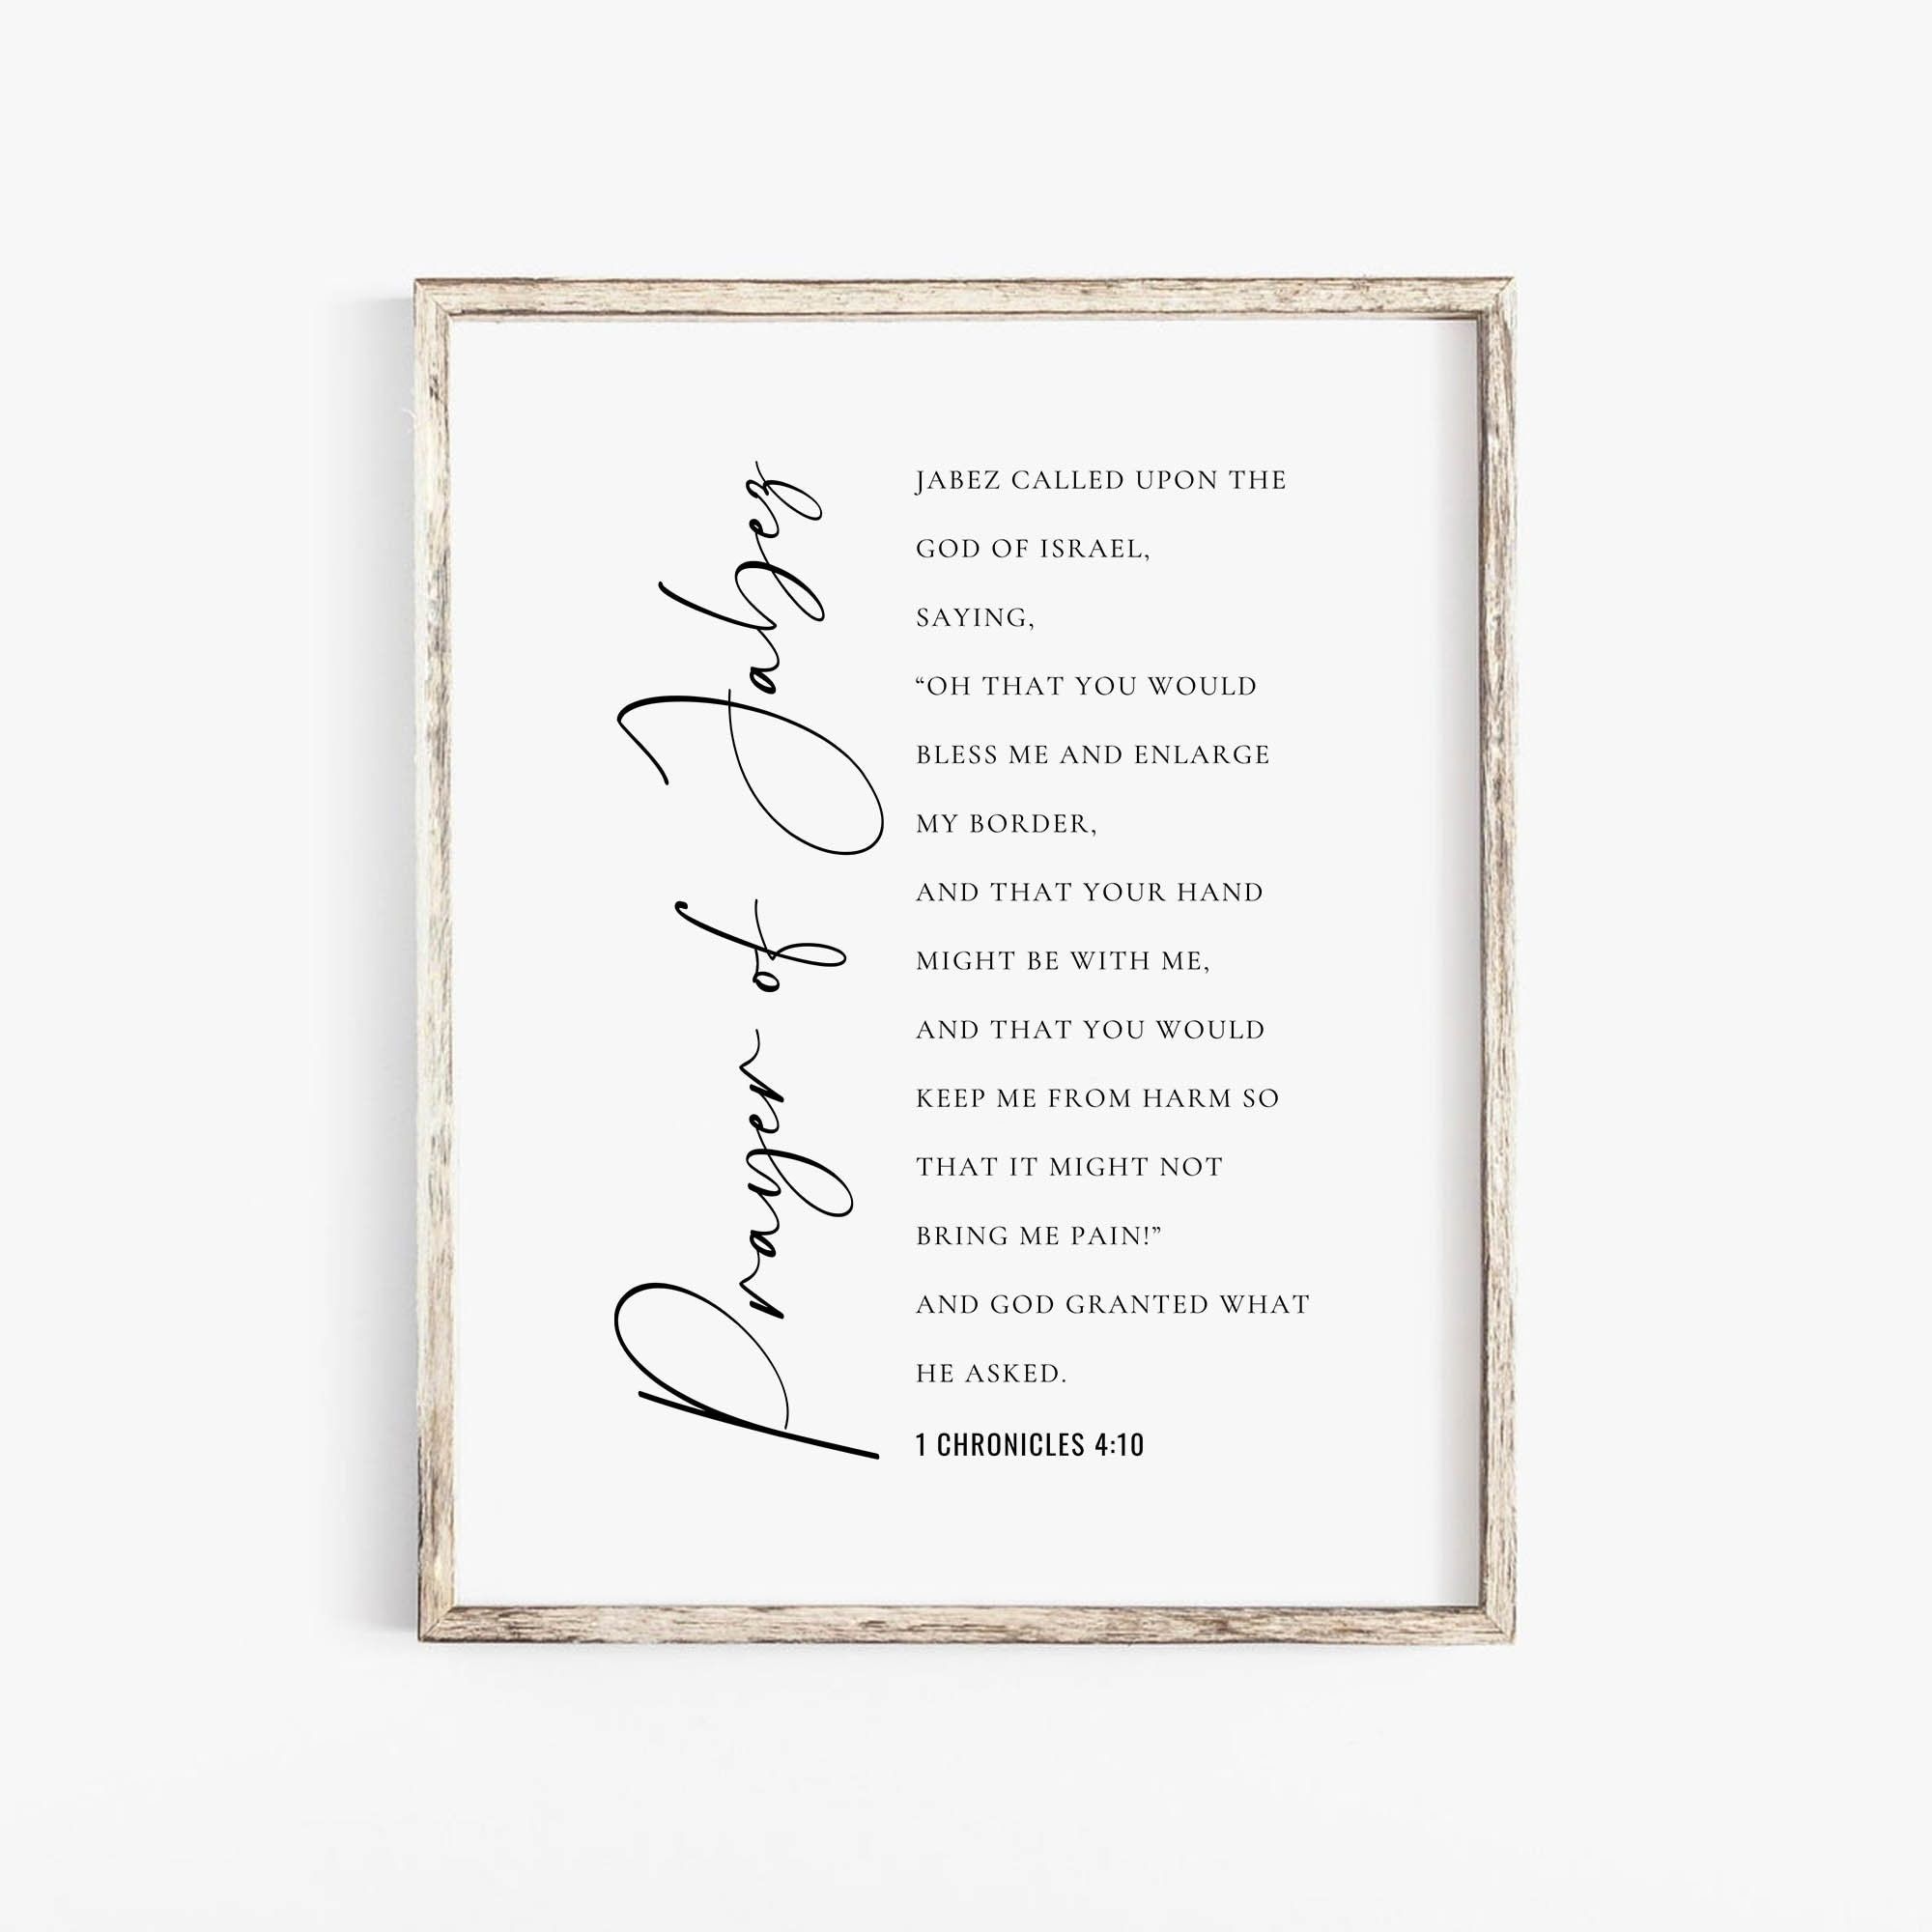 Prayer of Jabez
JABEZ CALLED UPON THE
GOD OF ISRAEL,
SAYING,
“OH THAT YOU WOULD
BLESS ME AND ENLARGE
MY BORDER,
AND THAT YOUR HAND
MIGHT BE WITH ME,
AND THAT YOU WOULD
KEEP ME FROM HARM SO
THAT IT MIGHT NOT
BRING ME PAIN!”
AND GOD GRANTED WHAT
HE ASKED.
1 CHRONICLES 4:10